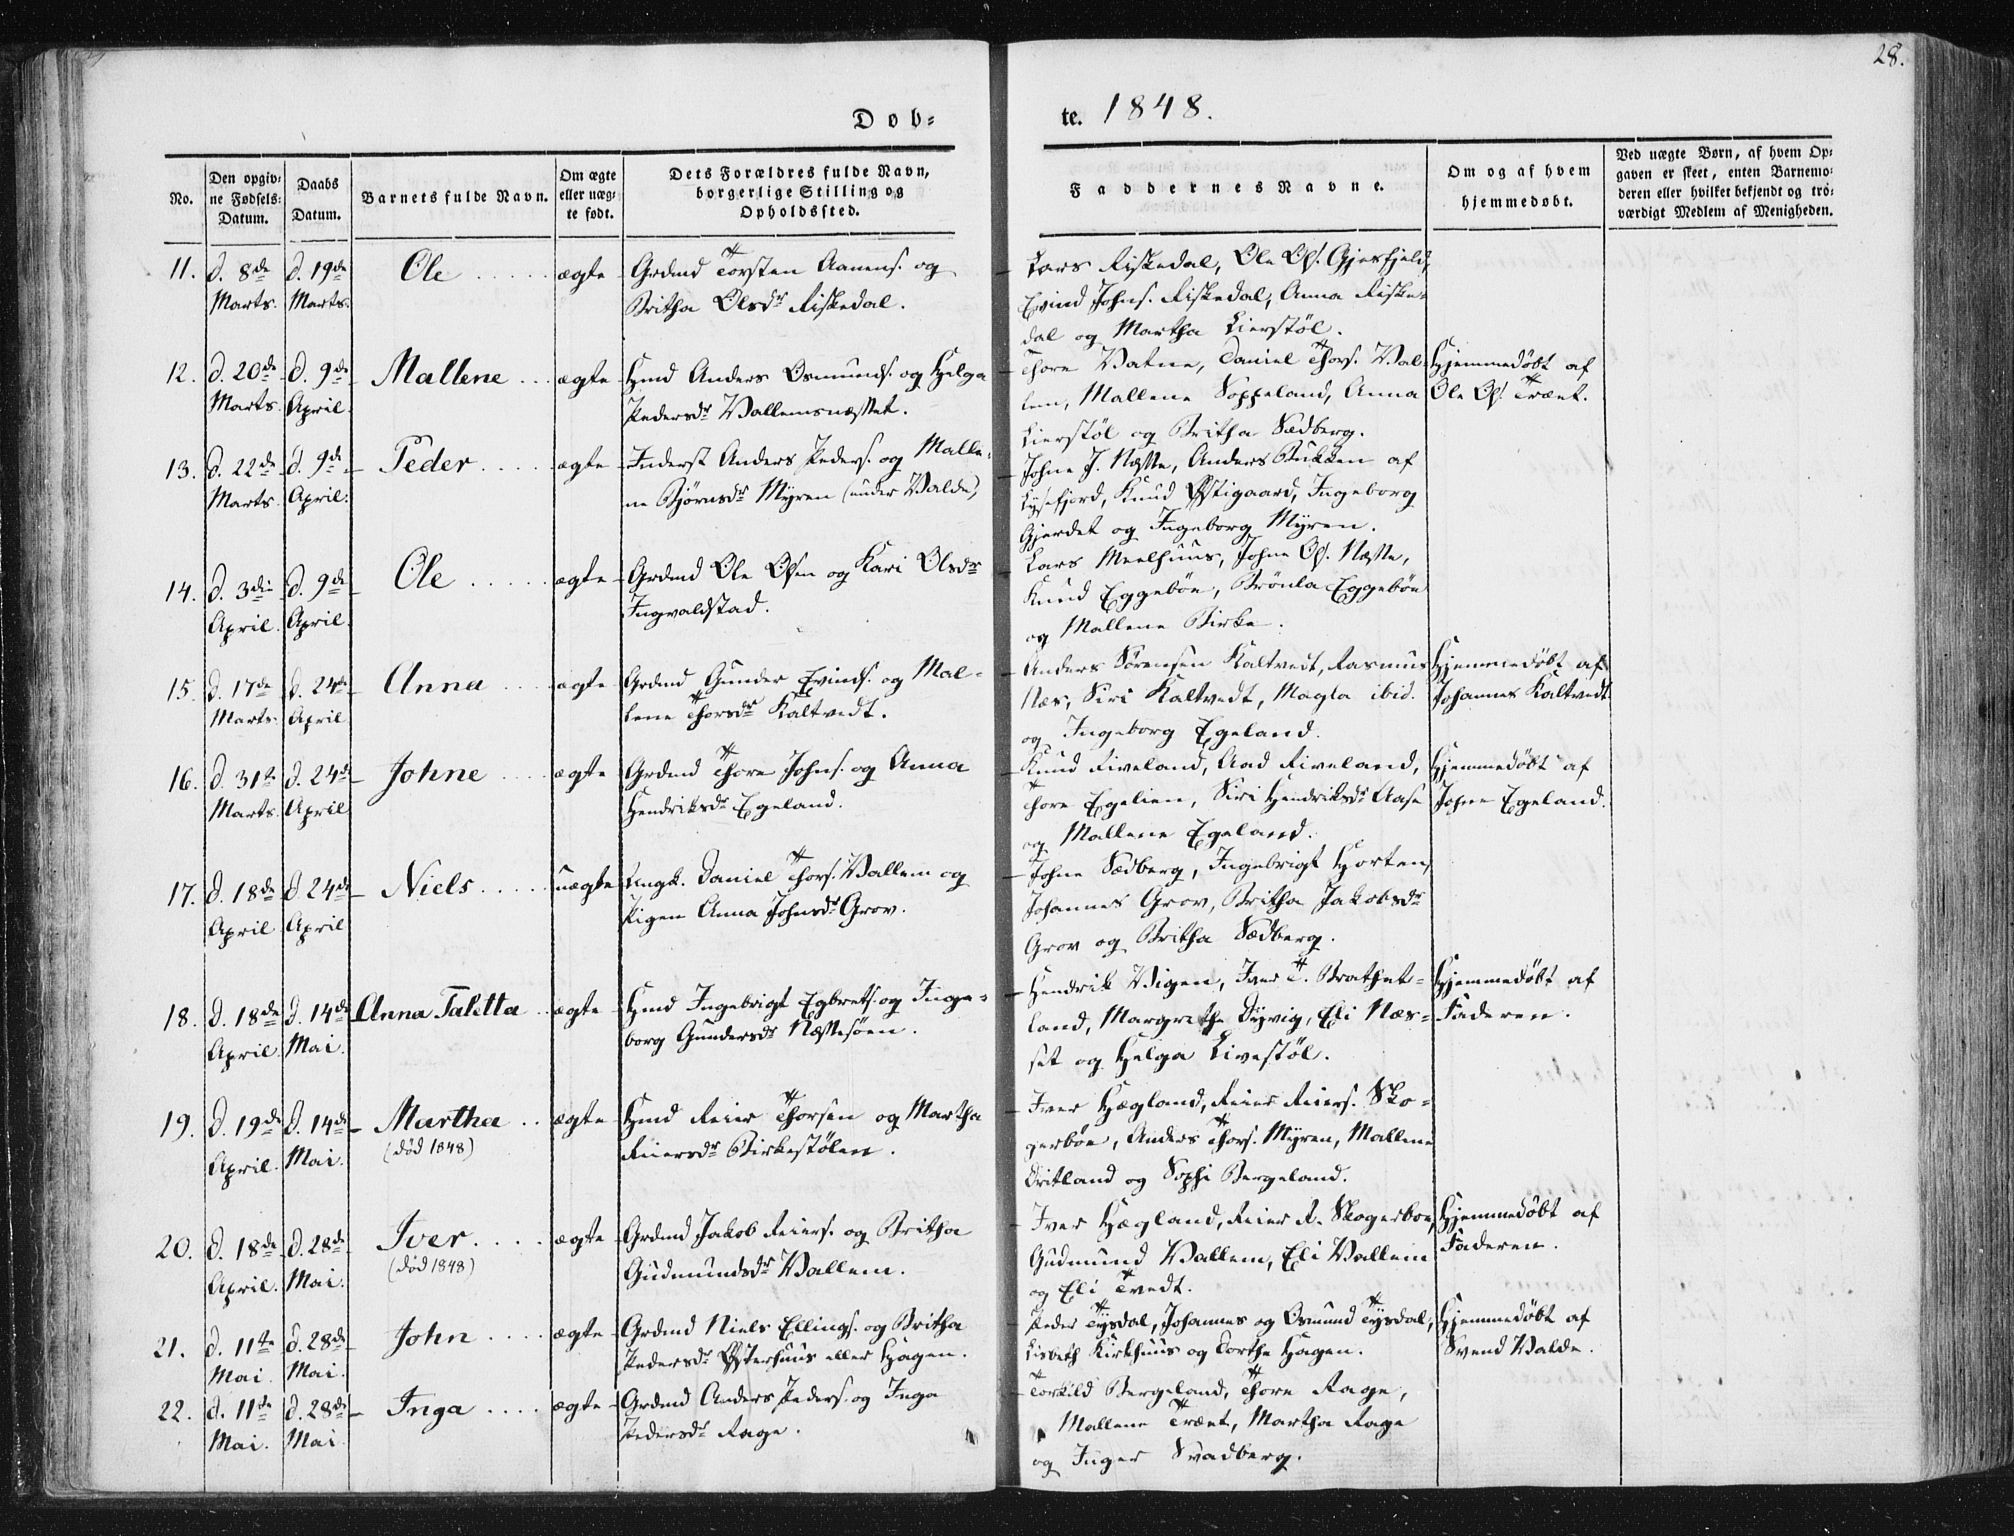 28.
Dob=
te. 1848.
No.
Den opgiv=
ne Fødsels=
Datum.
Daabs
Datum.
Barnets fulde Navn.
Om ægte
eller uæg=
te født.
Dets Forældres fulde Navn,
borgerlige Stilling og
Opholdssted.
Faddernes Navne.
Om og af hvem
hjemmedøbt.
Ved uægte Børn, af hvem Op=
gaven er skeet, enten Barnemo=
deren eller hvilket bekjendt og tro=
værdigt Medlem af Menigheden.
11. d. 8de Marts. d. 19de Marts. Ole ..... ægte
Grdmd Torsten Aanens. og
Britha Olsdr Riskedal.
Lars Riskedal, Ole Ols. Gjesfjeld,
Evind Johns. Riskedal, Anna Riske=
dal og Martha Lierstöl.
12. d. 20de Marts. d. 9de April. Mallene ... ægte
Hmd Anders Osmunds. og Helga
Pedersdr Vallemsnæsset.
Thore Vatne, Daniel Thors. Val=
lem, Mallene Soppeland, Anna
Lierstöl og Britha Sædberg.
Hjemmedöbt af
Ole Ols. Træet.
13. d. 22de Marts. d. 9de April. Peder .... ægte
Inderst Anders Peders. og Malle=
ne Bjørnsdr Myren (under Valde)
Johne J. Næsse, Anders Bukken af
Lysefjord, Knud Østigaard, Ingeborg
Gjerdet og Ingeborg Myren.
14. d. 3die April. d. 9de April. Ole ..... ægte
Grdmd Ole Olsen og Kari Olsdr
Ingvaldstad.
Lars Meelhuus, Johne Ols. Næsse,
Knud Eggebøe, Brönla Eggeböe
og Mallene Birke.
15. d. 17de Marts. d. 24de April Anna ... ægte
Grdmd Gunder Evinds. og Mal=
lene Thorsdr Kaltvedt.
Anders Sörensen Kaltvedt, Rasmus
Næs, Siri Kaltvedt, Magla ibid.
og Ingeborg Egeland.
Hjemmedöbt af
Johannes Kaltvedt
16. d. 31te Marts. d. 24de April Johne .... ægte
Grdmd Thore Johns. og Anna
Hendriksdr Egeland.
Knud Riveland, Aad Riveland,
Thore Egelien, Siri Hendriksdr Aase
og Mallene Egeland.
Hjemmedöbt af
Johne Egeland.
17. d. 18de April d. 24de April Niels ..... uægte
Ungk. Daniel Thors. Vallem og
Pigen Anna Johnsdr Grov.
Johne Sædberg, Ingebrigt Horten,
Johannes Grov, Britha Jakobsdr
Grov og Britha Sædberg.
18. d. 18de April. d. 14de Mai. Anna Taletta . ægte
Hmd Ingebrigt Egbrets. og Inge=
borg Gundersdr Næssesöen.
Hendrik Vigen, Iver T. Brathet=
land, Margrethe Dyvig, Eli Næs=
set og Helga Livestöl.
Hjemmedöbt af
Faderen.
19. d. 19de April. d. 14de Mai. Martha .. ægte
(död 1848)
Hmd Reier Thorsen og Martha
Reiersdr Birkestölen.
Iver Hægland, Reier Reiers. Sko=
gerböe, Anders Thors. Myren, Mallene
Dritland og Sophi Bergeland.
20. d. 18de April. d. 28de Mai. Iver .... ægte
(död 1848)
Grdmd Jakob Reiers. og Britha
Gudmundsdr Vallem.
Iver Hægland, Reier R. Skogerboe,
Gudmund Vallem, Eli Vallem
og Eli Tvedt.
Hjemmedöbt af
Faderen.
21. d. 11te Mai. d. 28de Mai. John .... ægte
Grdmd Niels Ellings. og Britha
Pedersdr Østerhuus eller Hagen.
Peder Tysdal, Johannes og Osmund Tysdal,
Lisbeth Kirkhuus og Dorthe Hagen.
Hjemmedöbt af
Svend Valde.
22. d. 11te Mai. d. 28de Mai Inga .... ægte
Grdmd Anders Peders. og Inga
Pedersdr Rage.
Torkild Bergeland, Thore Rage,
Mallene Træet, Martha Rage
og Inger Svadberg.